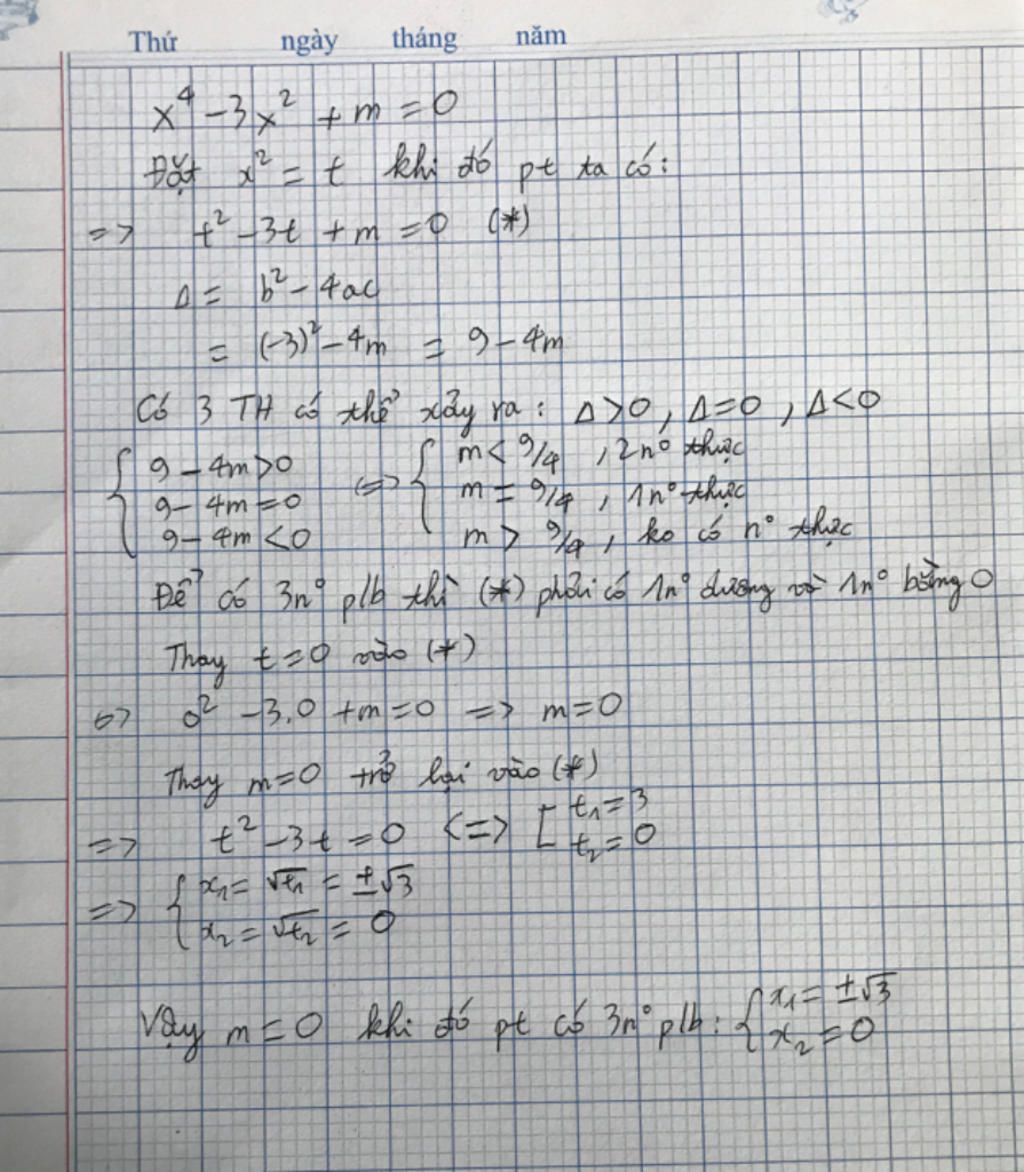 Thứ ngày tháng năm
x⁴ - 3x² + m = 0
Đặt x² = t khi đó pt ta có:
=> t² - 3t + m = 0 (*)
Δ = b² - 4ac
= (-3)² - 4m = 9 - 4m
Có 3 TH có thể xảy ra: Δ > 0, Δ = 0, Δ < 0
{ 9 - 4m > 0 <=> { m < 9/4, 2n° thực
9 - 4m = 0 m = 9/4, 1n° thực
9 - 4m < 0 m > 9/4, ko có n° thực
Để có 3n° plb thì (*) phải có 1n° dương và 1n° bằng 0
Thay t = 0 vào (*)
<=> 0² - 3.0 + m = 0 => m = 0
Thay m = 0 trở lại vào (*)
=> t² - 3t = 0 <=> [ t₁ = 3
t₂ = 0
=> { x₁ = √t₁ = ±√3
x₂ = √t₂ = 0
Vậy m = 0 khi đó pt có 3n° plb: { x₁ = ±√3
x₂ = 0